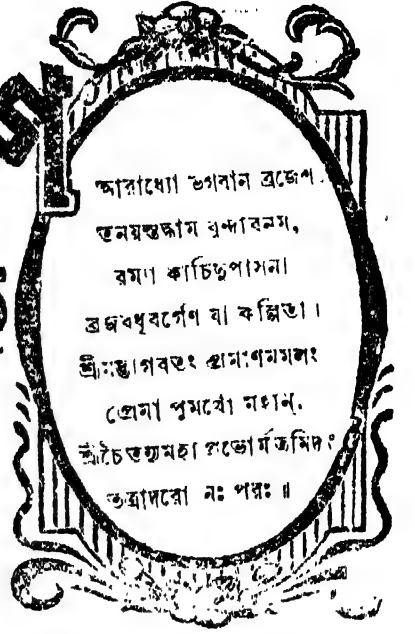 আরাধ্যো ভগবান ব্রজেশ
তনয়স্তদ্ধাম বৃন্দাবনম,
রম্যা কাচিদুপাসনা
ব্রজবধূবর্গেণ যা কল্পিতা।
শ্রীমদ্ভাগবতং প্রমাণমমলং
প্রেমা পুমর্থো মহান্,
শ্রীচৈতন্যমহাপ্রভোর্মতমিদং
তত্রাদরো নঃ পরঃ॥